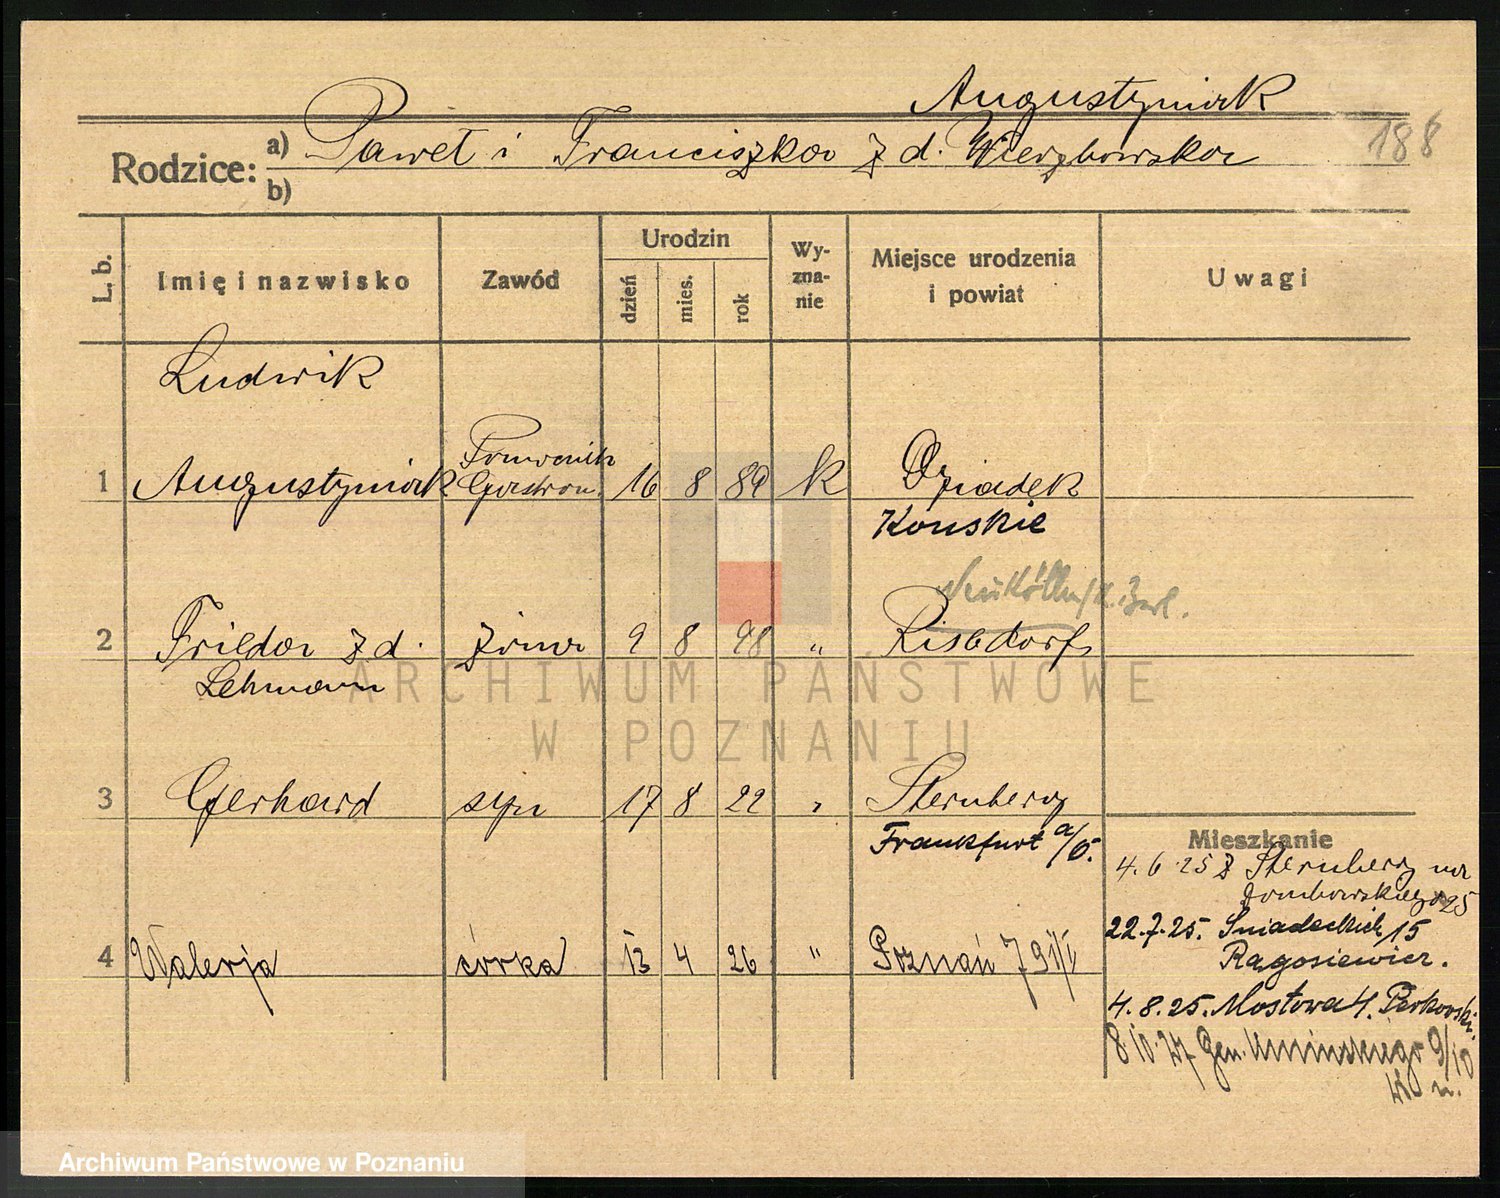 Augustyniak
188
Rodzice: a) Paweł i Franciszka z d. Wierzbowska
b)
L. b. Imię i nazwisko Zawód Urodzin dzień mies. rok Wyznanie Miejsce urodzenia i powiat Uwagi
Ludwik
1 Augustyniak 16 8 89 k Dziadek
Końskie
Neukölln
2 Frieda z d. żona 9 8 98 „
Lehmann
3 Gerhard syn 17 8 22 „ Sternberg
Frankfurt a/O.
Mieszkanie
4. 6. 25 z Sternberg na
Dombrowskiego 25
22. 7. 25. Śniadeckich 15
4 Walerja córka 13 4 26 „ Poznań
4. 8. 25. Mostowa 4.
8 10 27 Gen. Umińskiego 9/10
ARCHIWUM PAŃSTWOWE
W POZNANIU
Archiwum Państwowe w Poznaniu